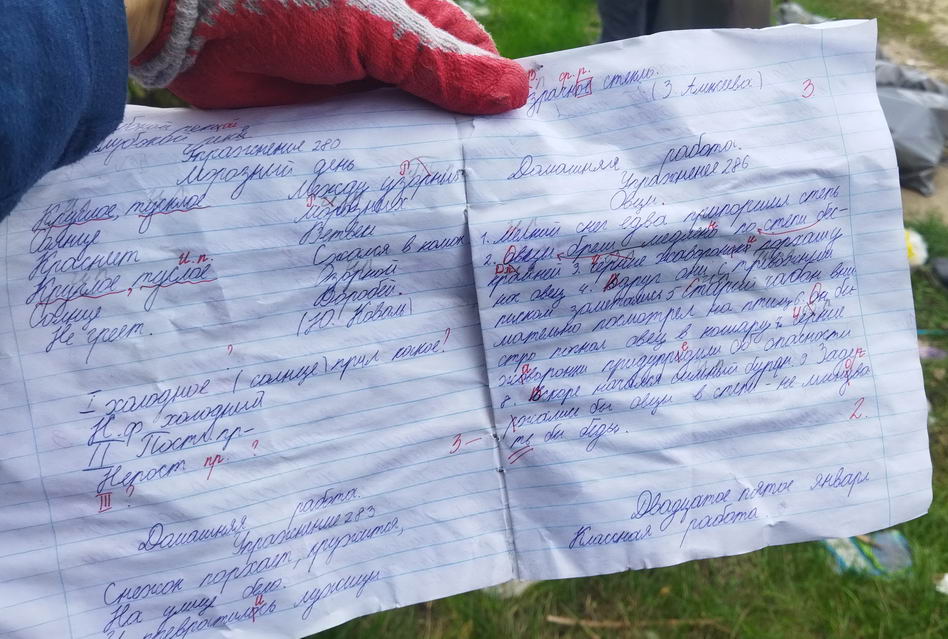 Упражнение 280
Морозный день
Круглое, тусклое
Солнце
Краснеет
и.п.
Круглое, тусклое
Солнце
Не греет.
Между узорных
Морозных
Ветвей
Сжался в комок
Зоркой
Воробей.
(Ю. Коваль)
?
I холодное (солнце) прил какое?
Н.ф холодный
II Пост. пр-
Непост пр. ?
III ?
3-
Домашняя работа.
Упражнение 283
Снежок порхает, кружится,
На улице бело.
И превратились лужицы
ф.р.
стекло.
(З. Алексева)
3
Домашняя работа.
Упражнение 286
Овцы.
1. Мелкий снег едва припорошил степь
2. Овцы брели медлено по степи бес-
крайней 3. Чёрные жаворонки
ник овец 4. Вдруг они с тревожным
писком заметались 5 Старый чабан вни
мательно посмотрел на птиц 6. Он бы
стро погнал овец в кошару 7. Чёрные
жаворонки придупредили об опасности
8. Вскоре начался сильный буран. 9 Заде
ржались бы овцы в степи - не миновать
бы беды.
2.
Двадцатое пятое январь
Классная работа.